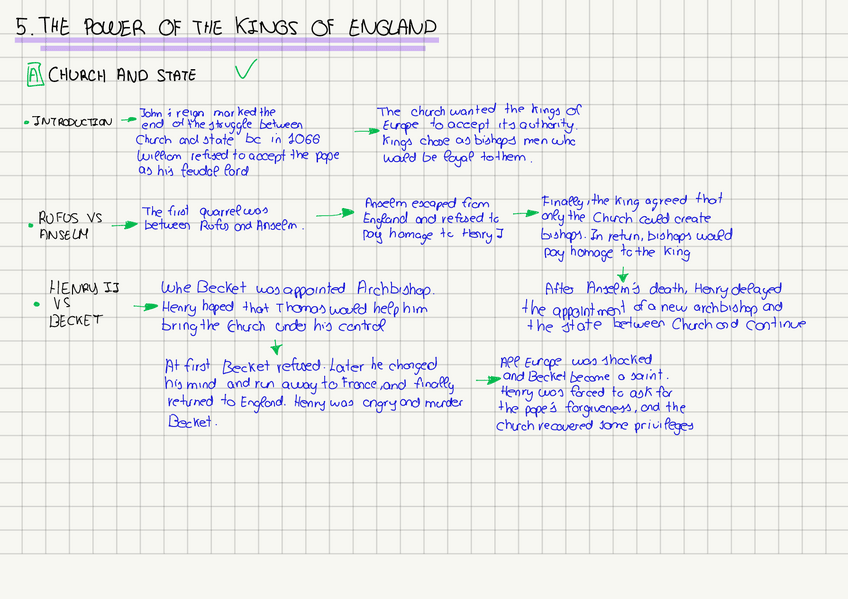 5. THE POWER OF THE KINGS OF ENGLAND
A CHURCH AND STATE
INTRODUCTION
John's reign marked the
end of the struggle between
Church and state bc in 1066
William refused to accept the pope
as his feudal lord
The church wanted the kings of
Europe to accept its authority.
Kings chose as bishops men who
would be loyal to them.
RUFUS VS
ANSELM
The first quarrel was
between Rufus and Anselm.
Anselm escaped from
England and refused to
pay homage to Henry I
Finally, the king agreed that
only the Church could create
bishops. In return, bishops would
pay homage to the king
After Anselm's death, Henry delayed
the appointment of a new archbishop and
the state between Church and continue
HENRY II
VS
BECKET
Whe Becket was appointed Archbishop.
Henry hoped that Thomas would help him
bring the Church under his control
At first Becket refused. Later he changed
his mind and run away to France, and finally
returned to England. Henry was angry and murder
Becket.
All Europe was shocked
and Becket became a saint.
Henry was forced to ask for
the pope's forgiveness, and the
church recovered some privileges